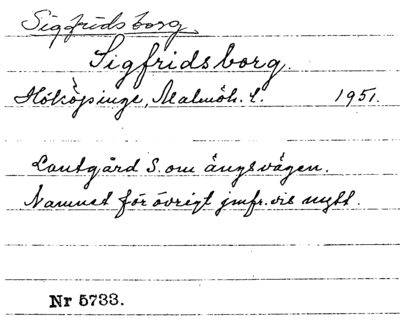 Sigfridsborg
Sigfridsborg.
Hököpinge, Malmöh. l. 1951.
Lantgård S. om ängsvägen.
Namnet för övrigt jmfr.vis nytt.
Nr 5733.